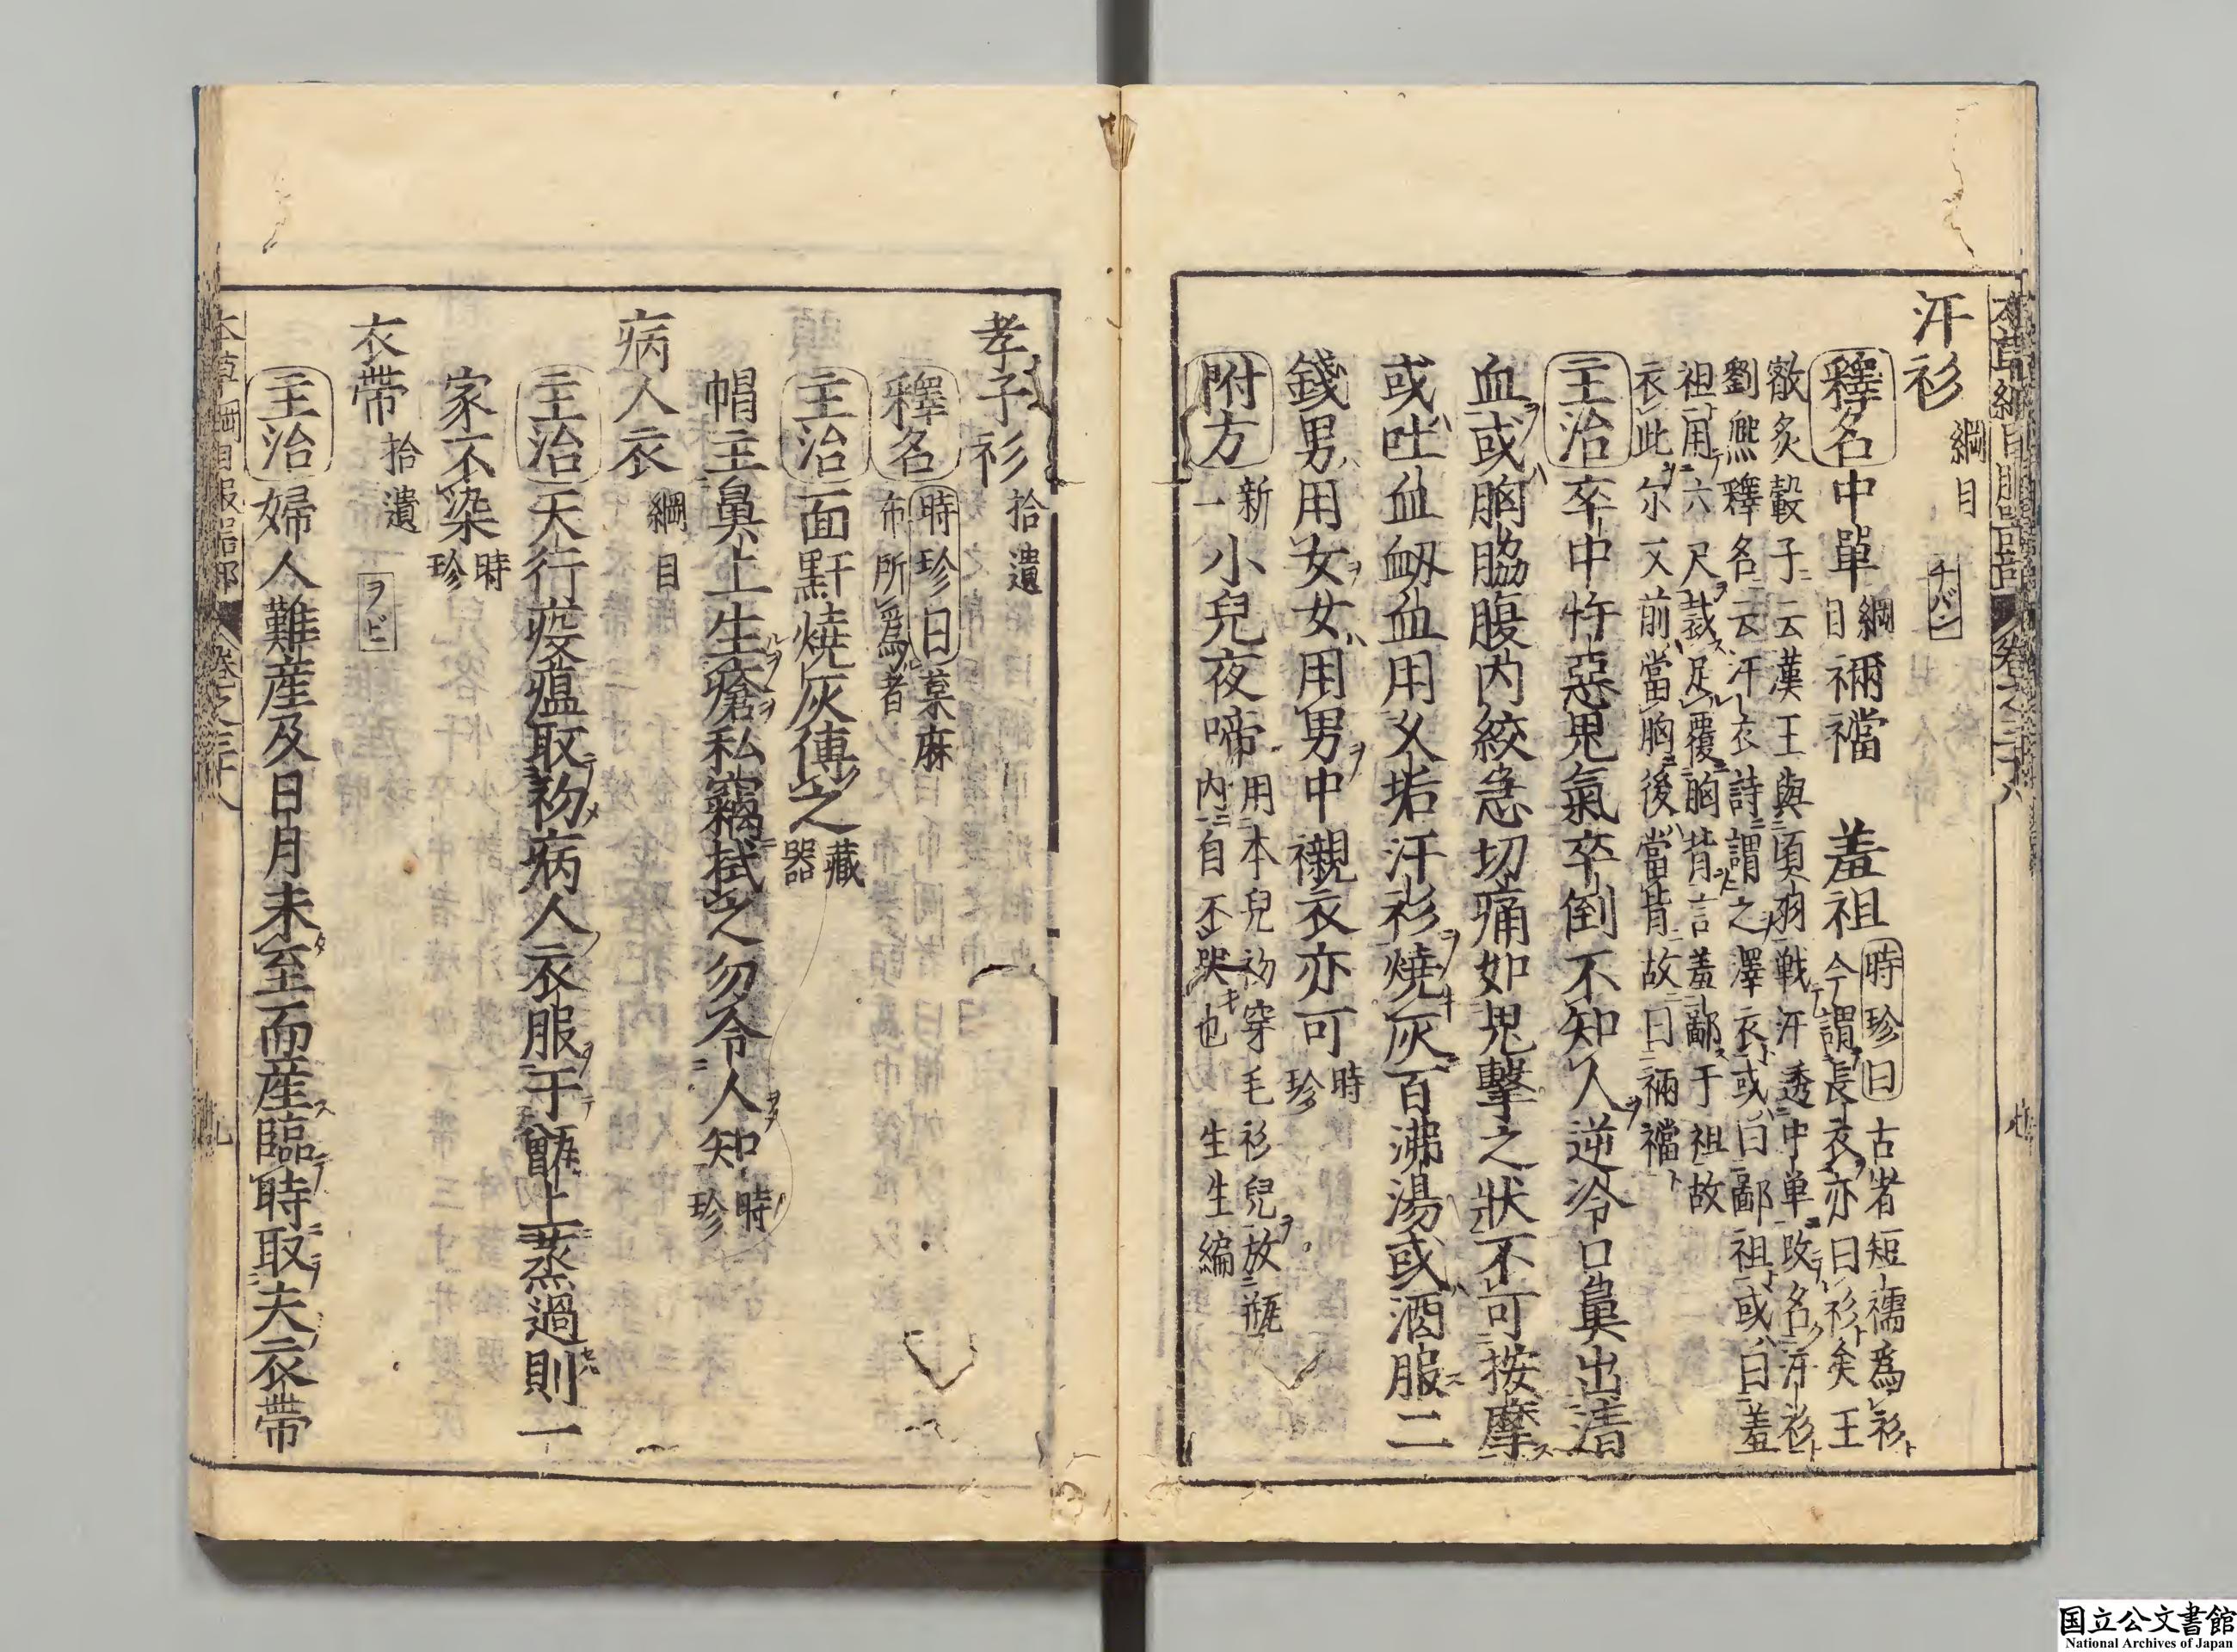 本草綱目服器部 卷之三十八
汗衫 綱目 チバン
釋名 中單 綱目 裲襠 羞袒 時珍曰 古者短襦爲衫
今謂長衣亦曰衫矣王
叡炙轂子云漢王與項羽戰汗透中単改名汗衫
劉熈釋名云汗衣詩謂之澤衣或曰鄙袒或曰羞
袒用六尺裁足覆胸背言羞鄙于袒故
衣此尔又前當胸後當背故曰裲襠
主治 卒中忤惡鬼氣卒倒不知人逆冷口鼻出清
血或胸脇腹内絞急切痛如鬼擊之狀不可按摩
或吐血衂血用久垢汗衫燒灰百沸湯或酒服二
錢男用女女用男中襯衣亦可 時珍
附方 新一 小兒夜啼 用本兒初穿毛衫兒放瓶
内自不哭也 生生編
孝子衫 拾遺
釋名 時珍曰 枲麻
布所爲者
主治 面䵟燒灰傅之 藏器
帽主鼻上生瘡私竊拭之勿令人知 時珍
病人衣 綱目
主治 天行疫瘟取初病人衣服于甑上蒸過則一
家不染 時珍
衣帶 拾遺 ヲビ
主治 婦人難産及日月未至而産臨時取夫衣帶
本草綱目服器部 卷之三十八
国立公文書館
National Archives of Japan